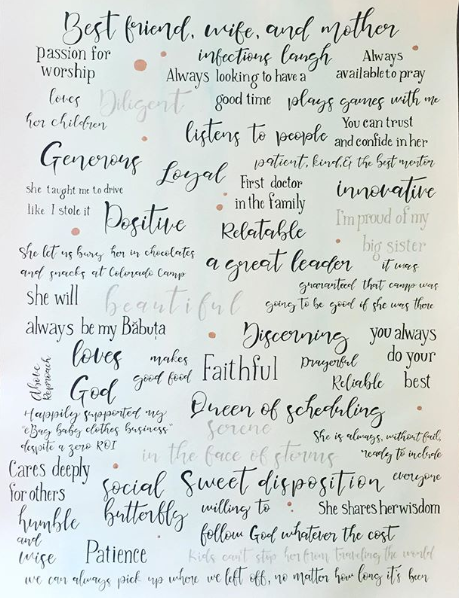 Best friend, wife, and mother
passion for
worship
infectious laugh
Always
available to pray
Always looking to have a
good time
loves
her children
Diligent
plays games with me
listens to people
You can trust
and confide in her
Generous
Loyal
patient, kind, & the best mentor
she taught me to drive
like I stole it
First doctor
in the family
innovative
Positive
Relatable
I'm proud of my
big sister
She let us bury her in chocolates
and snacks at Colorado Camp
a great leader
it was
guaranteed that camp was
going to be good if she was there
she will
always be my Băbuța
beautiful
Discerning
you always
do your
best
Above
Reproach
loves
God
makes
good food
Faithful
Prayerful
Reliable
Happily supported my
"eBay baby clothes business"
despite a zero ROI
Queen of scheduling
Serene
in the face of storms
She is always, without fail,
ready to include
everyone
Cares deeply
for others
social
butterfly
Sweet disposition
humble
and
wise
willing to
follow God whatever the cost
She shares her wisdom
Patience
Kids can't stop her from traveling the world
we can always pick up where we left off, no matter how long it's been